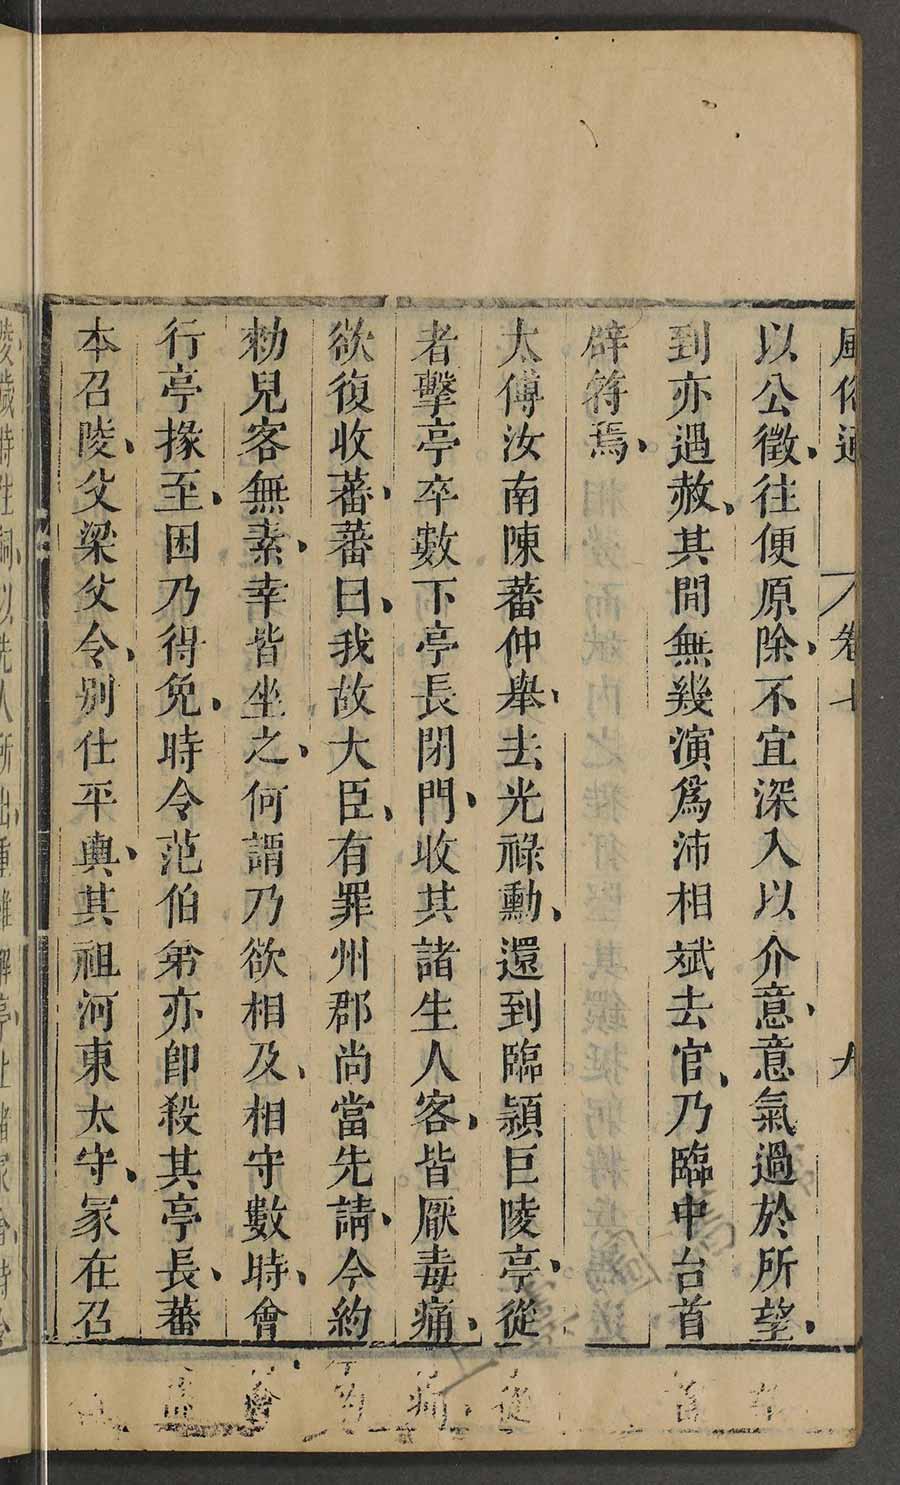 風俗通 卷七 九
以公徵往便原除不宜深入以介意意氣過於所望
到亦遇赦其間無幾演爲沛相斌去官乃臨中台首
辟符焉
太傅汝南陳蕃仲舉去光祿勳還到臨潁巨陵亭從
者擊亭卒數下亭長閉門收其諸生人客皆厭毒痛
欲復收蕃蕃曰我故大臣有罪州郡尚當先請今約
勑兒客無素幸皆坐之何謂乃欲相及相守數時會
行亭掾至困乃得免時令范伯弟亦卽殺其亭長蕃
本召陵父梁父令別仕平輿其祖河東太守冢在召